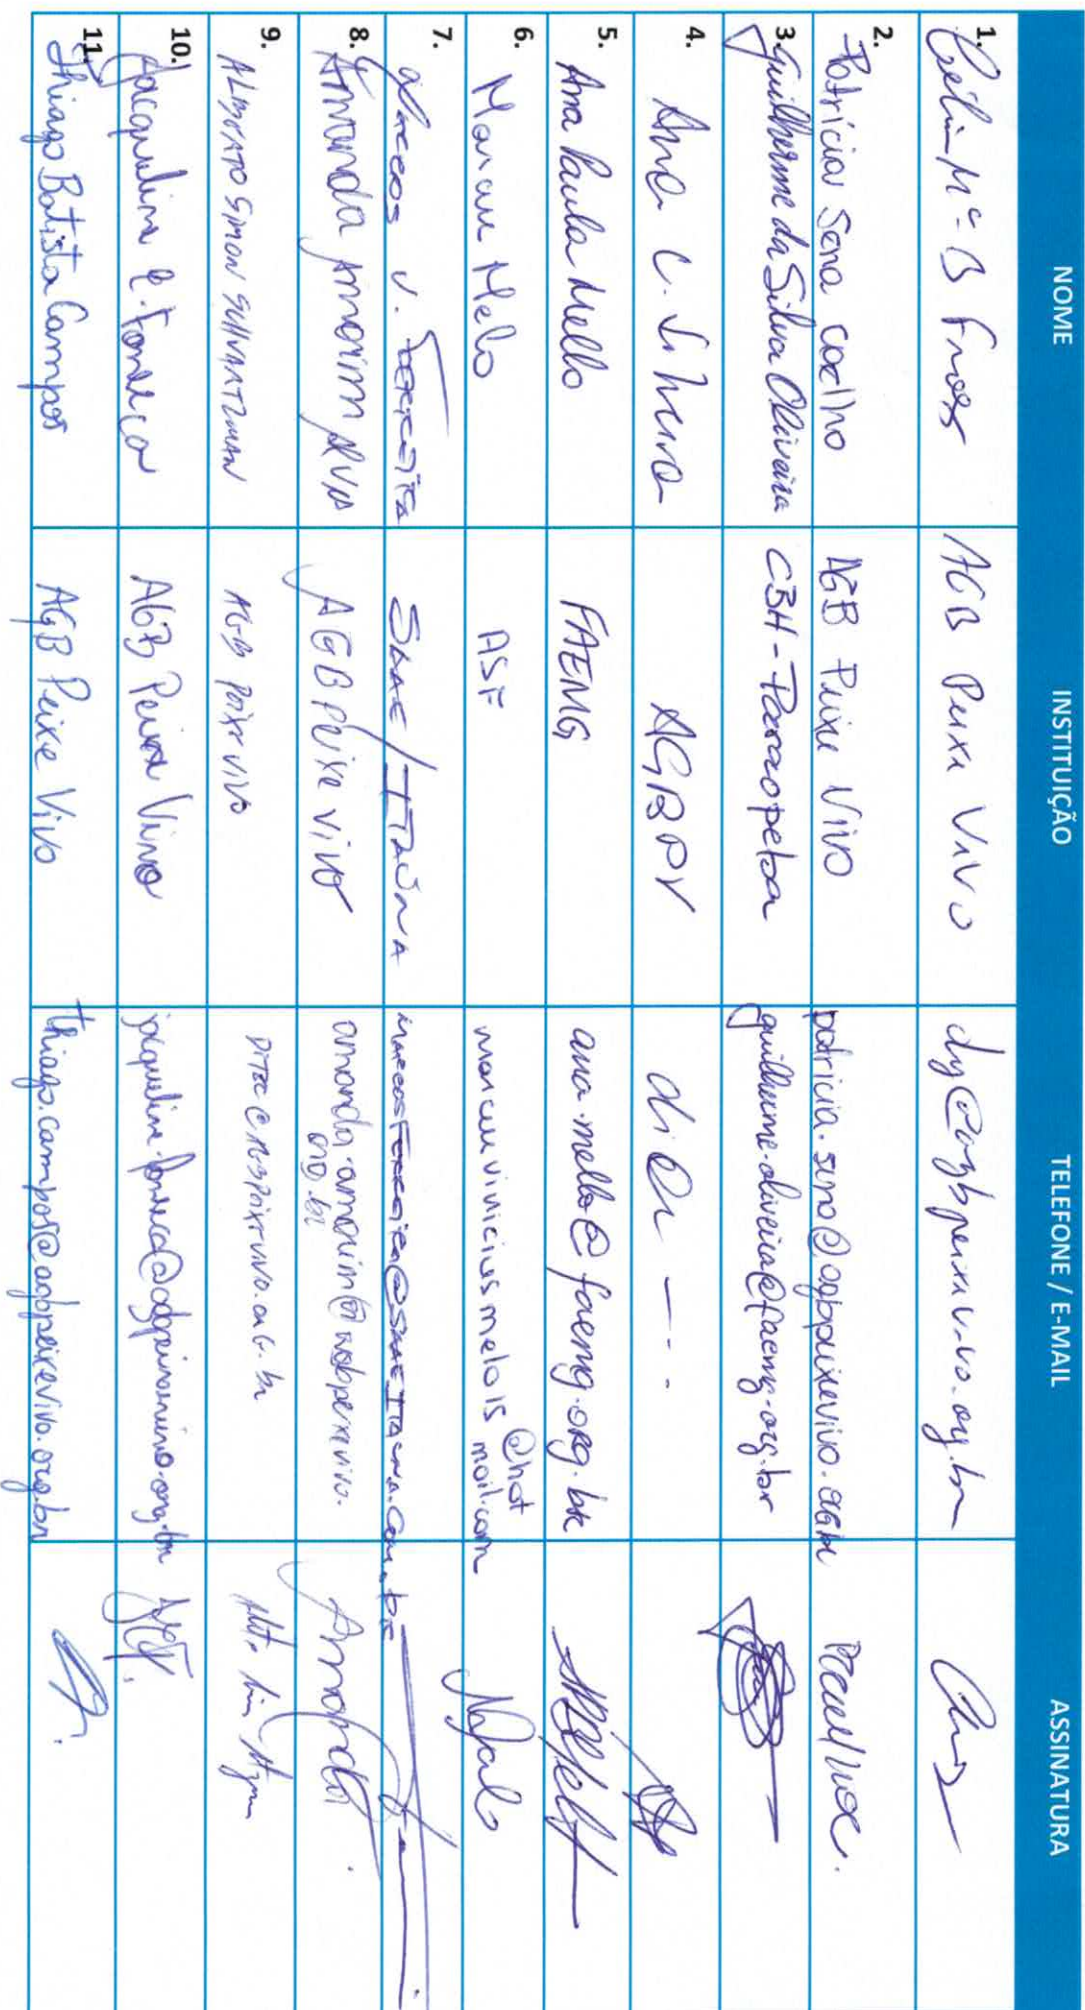 NOME INSTITUIÇÃO TELEFONE / E-MAIL ASSINATURA
1. Mª B AGB Peixe Vivo
2. Patrícia Sena Coelho AGB Peixe Vivo patricia.sena@agbpeixevivo.org.br PSCoelho.
3. Guilherme da Silva Oliveira CBH-Paraopeba guilherme.oliveira@faemg.org.br
4. Ana C. Silveira AGBPV
5. Ana Paula Mello FAEMG ana.mello@faemg.org.br
6. Marcus Melo ASF marcusviniciusmelo15@hotmail.com
7. Marcos V. SAAE/ITAÚNA
8. Amanda Amorim AGB Peixe Vivo amanda.amorim@agbpeixevivo.
org.br Amanda
9. ALBERTO SIMON SCHVARTZMAN AGB PEIXE VIVO
10. Jacqueline E. Fonseca AGB Peixe Vivo jacqueline.fonseca@agbpeixevivo.org.br
11. Thiago Batista Campos AGB Peixe Vivo thiago.campos@agbpeixevivo.org.br